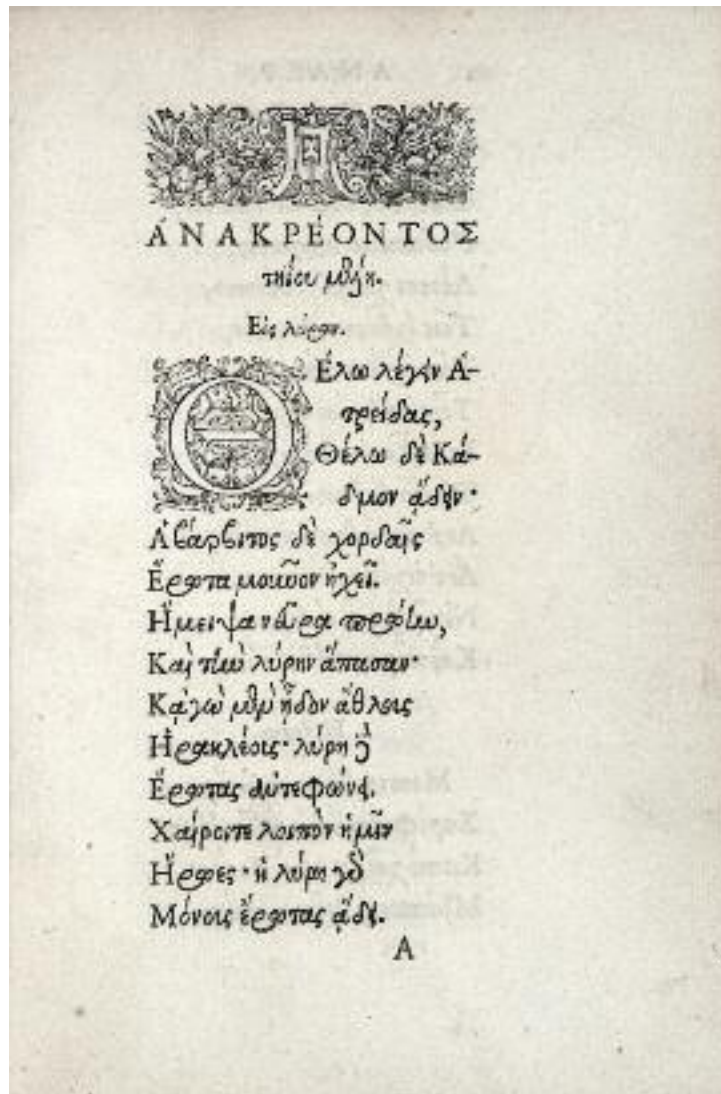 ἈΝΑΚΡΈΟΝΤΟΣ
τηίου μέλη.
Εἰς λύραν.
ΘΈλω λέγειν Ἀ-
τρείδας,
Θέλω δὲ Κά-
δμον ᾄδειν·
Ἁ βάρβιτος δὲ χορδαῖς
Ἔρωτα μοῦνον ἠχεῖ.
Ἤμειψα νεῦρα πρώην,
Καὶ τὴν λύρην ἅπασαν·
Κἀγὼ μὲν ᾖδον ἄθλους
Ἡρακλέους· λύρη δὲ
Ἔρωτας ἀντεφώνει.
Χαίροιτε λοιπὸν ἡμῖν
Ἥρωες· ἡ λύρη γὰρ
Μόνους ἔρωτας ᾄδει.
A